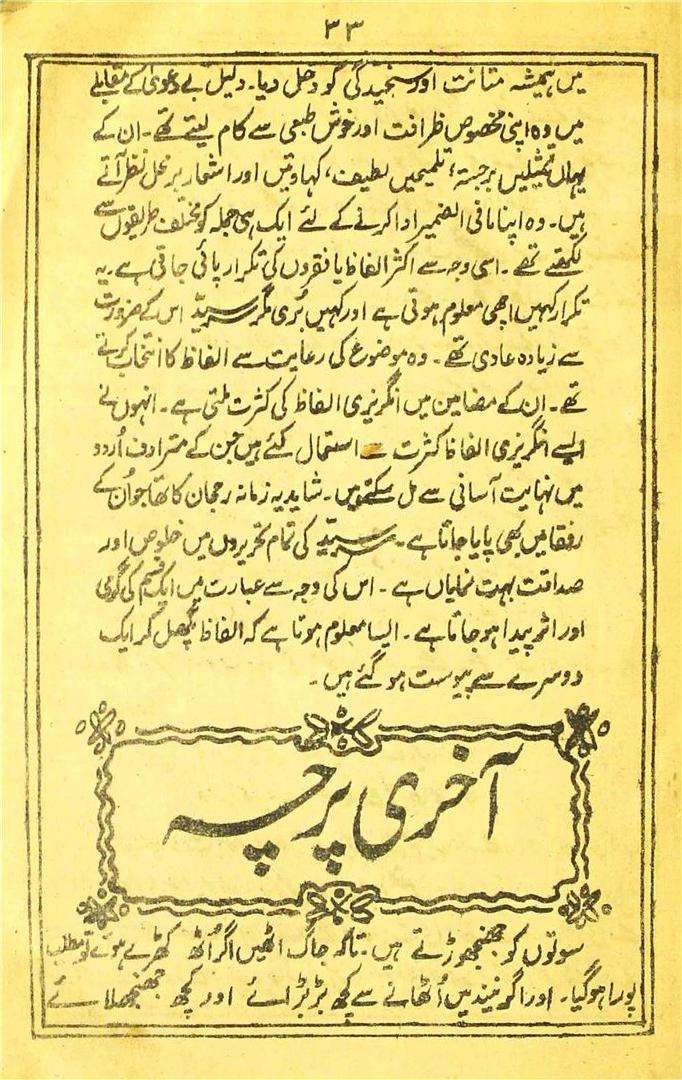 ۳۳
میں ہمیشہ متانت اور سنجیدگی کو دخل دیا۔ دلیل بے دعوی کے مقابلے
میں وہ اپنی مخصوص ظرافت اور خوش طبعی سے کام لیتے تھے۔ ان کے
یہاں تمثیلیں برجستہ، تلمیحیں لطیف، کہاوتیں اور اشعار برمحل نظر آتے
ہیں۔ وہ اپنا مافی الضمیر ادا کرنے کے لئے ایک ہی جملہ کو مختلف طریقوں سے
لکھتے تھے۔ اسی وجہ سے اکثر الفاظ یا فقروں کی تکرار پائی جاتی ہے۔ یہ
تکرار کہیں اچھی معلوم ہوتی ہے اور کہیں بُری مگر سرسیدؔ اس کے ضرورت
سے زیادہ عادی تھے۔ وہ موضوع کی رعایت سے الفاظ کا انتخاب کرتے
تھے۔ ان کے مضامین میں انگریزی الفاظ کی کثرت ملتی ہے۔ انہوں نے
ایسے انگریزی الفاظ کثرت سے استعمال کئے ہیں جن کے مترادف اُردو
میں نہایت آسانی سے مل سکتے ہیں۔ شاید یہ زمانہ رجحان کا تھا جو اُن کے
رفقا میں بھی پایا جاتا ہے۔ سرسیدؔ کی تمام تحریروں میں خلوص اور
صداقت بہت نمایاں ہے۔ اس کی وجہ سے عبارت میں ایک قسم کی گرمی
اور اثر پیدا ہو جاتا ہے۔ ایسا معلوم ہوتا ہے کہ الفاظ پگھل کر ایک
دوسرے سے پیوست ہو گئے ہیں۔
آخری پرچہ
سوتوں کو جھنجھوڑتے ہیں۔ تاکہ جاگ اٹھیں اگر اُٹھ کھڑے ہوئے تو مطلب
پورا ہو گیا۔ اور اگر نیند میں اُٹھانے سے کچھ بڑبڑائے اور کچھ جھنجھلائے